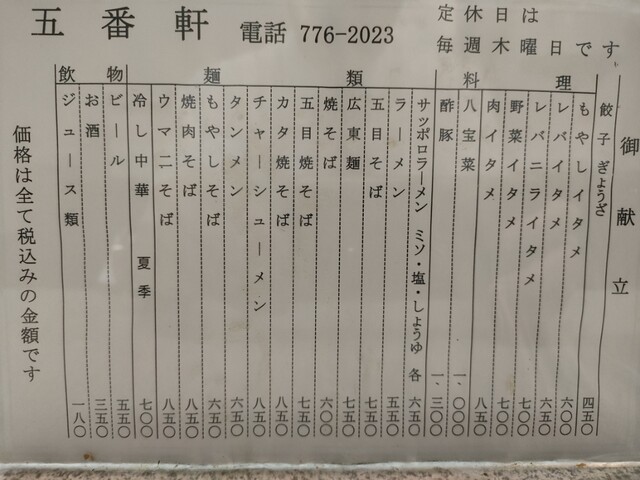 五番軒 電話 776-2023
定休日は
毎週木曜日です
御献立
料理
餃子 ぎょうざ 四五〇
もやしイタメ 六〇〇
レバイタメ 六五〇
レバニライタメ 七〇〇
野菜イタメ 七〇〇
肉イタメ 八五〇
八宝菜 一、〇〇〇
酢豚 一、三〇〇
麺類
サッポロラーメン ミソ・塩・しょうゆ 各 六五〇
ラーメン 五五〇
五目そば 七五〇
広東麺 七五〇
焼そば 六〇〇
五目焼そば 七五〇
カタ焼そば 八五〇
チャーシューメン 八五〇
タンメン 六五〇
もやしそば 六五〇
焼肉そば 八五〇
ウマ二そば 八五〇
冷し中華 夏季 七〇〇
飲物
ビール 五五〇
お酒 三五〇
ジュース類 一八〇
価格は全て税込みの金額です